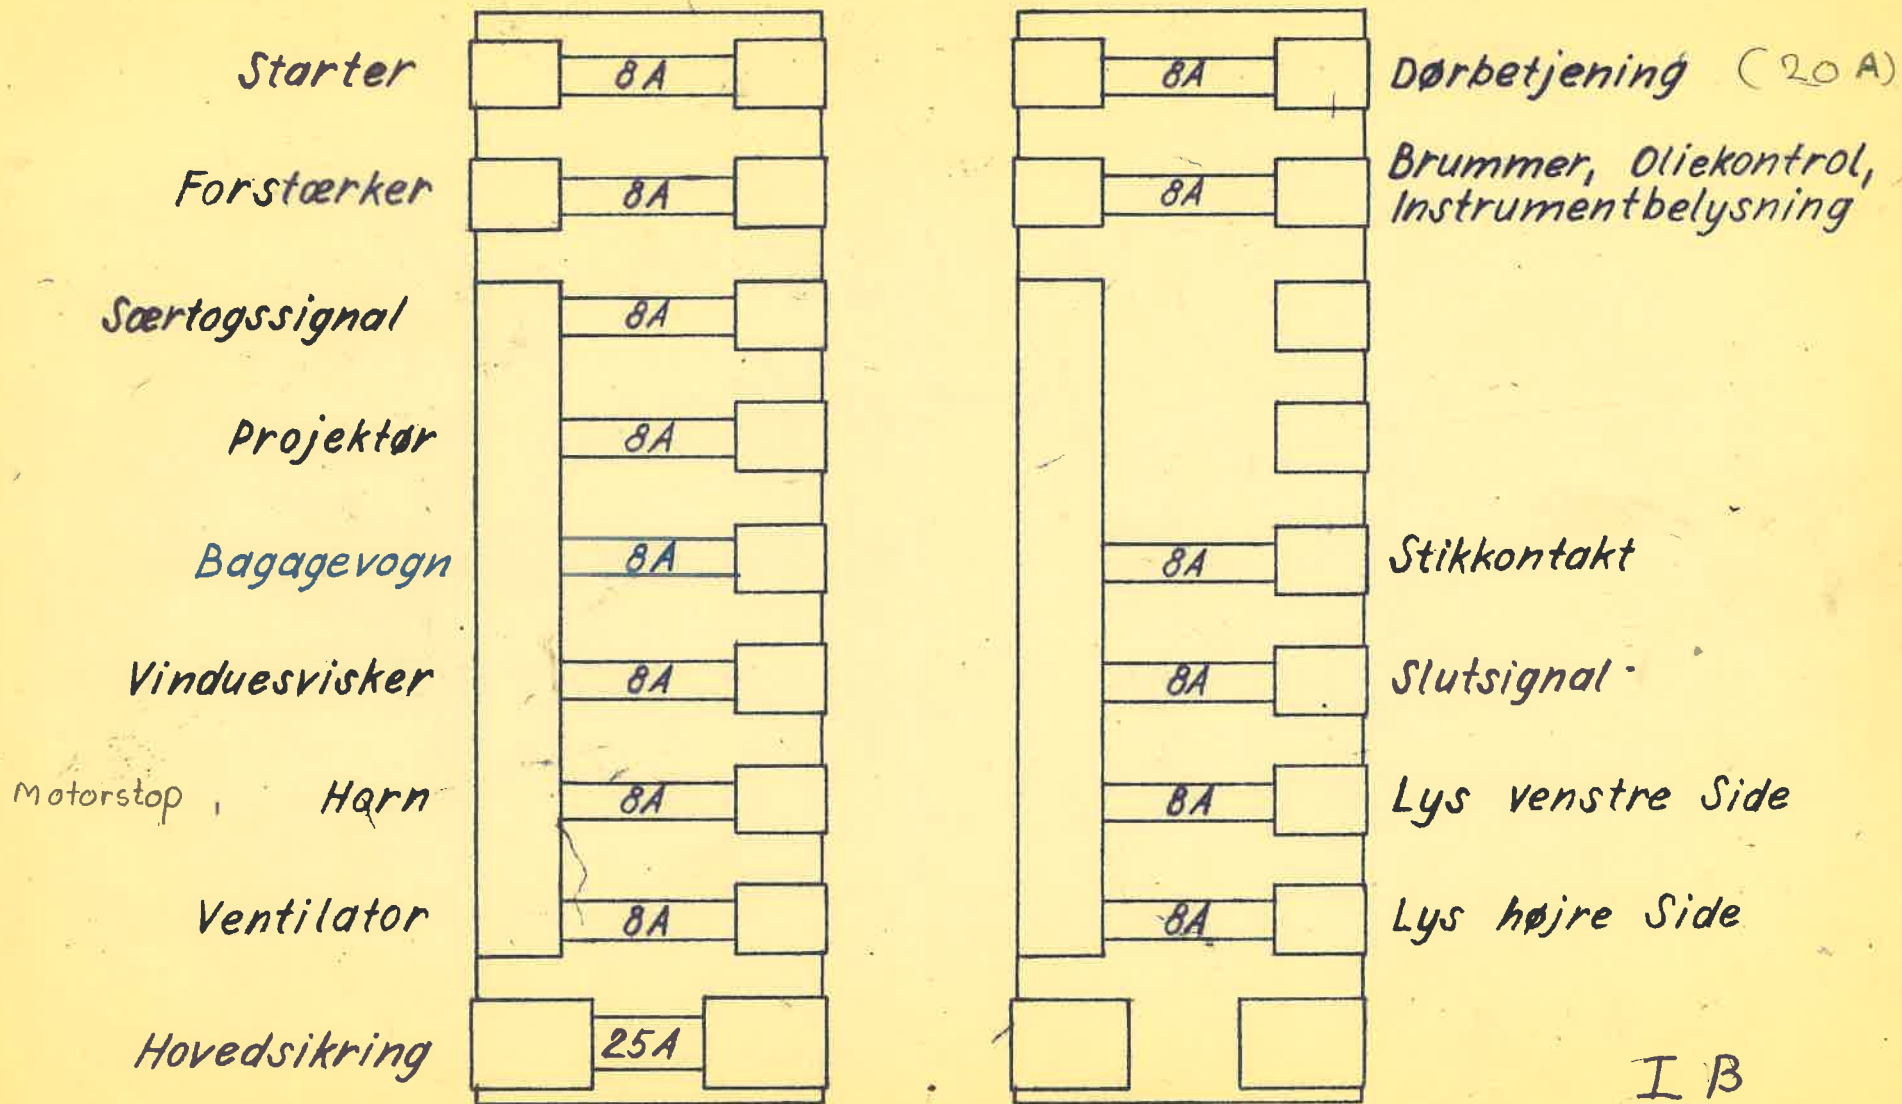 Starter 8A
Forstærker 8A
Særtogssignal 8A
Projektør 8A
Bagagevogn 8A
Vinduesvisker 8A
Motorstop, Horn 8A
Ventilator 8A
Hovedsikring 25A
8A Dørbetjening (20 A)
8A Brummer, Oliekontrol,
Instrumentbelysning
8A Stikkontakt
8A Slutsignal
8A Lys venstre Side
8A Lys højre Side
I B